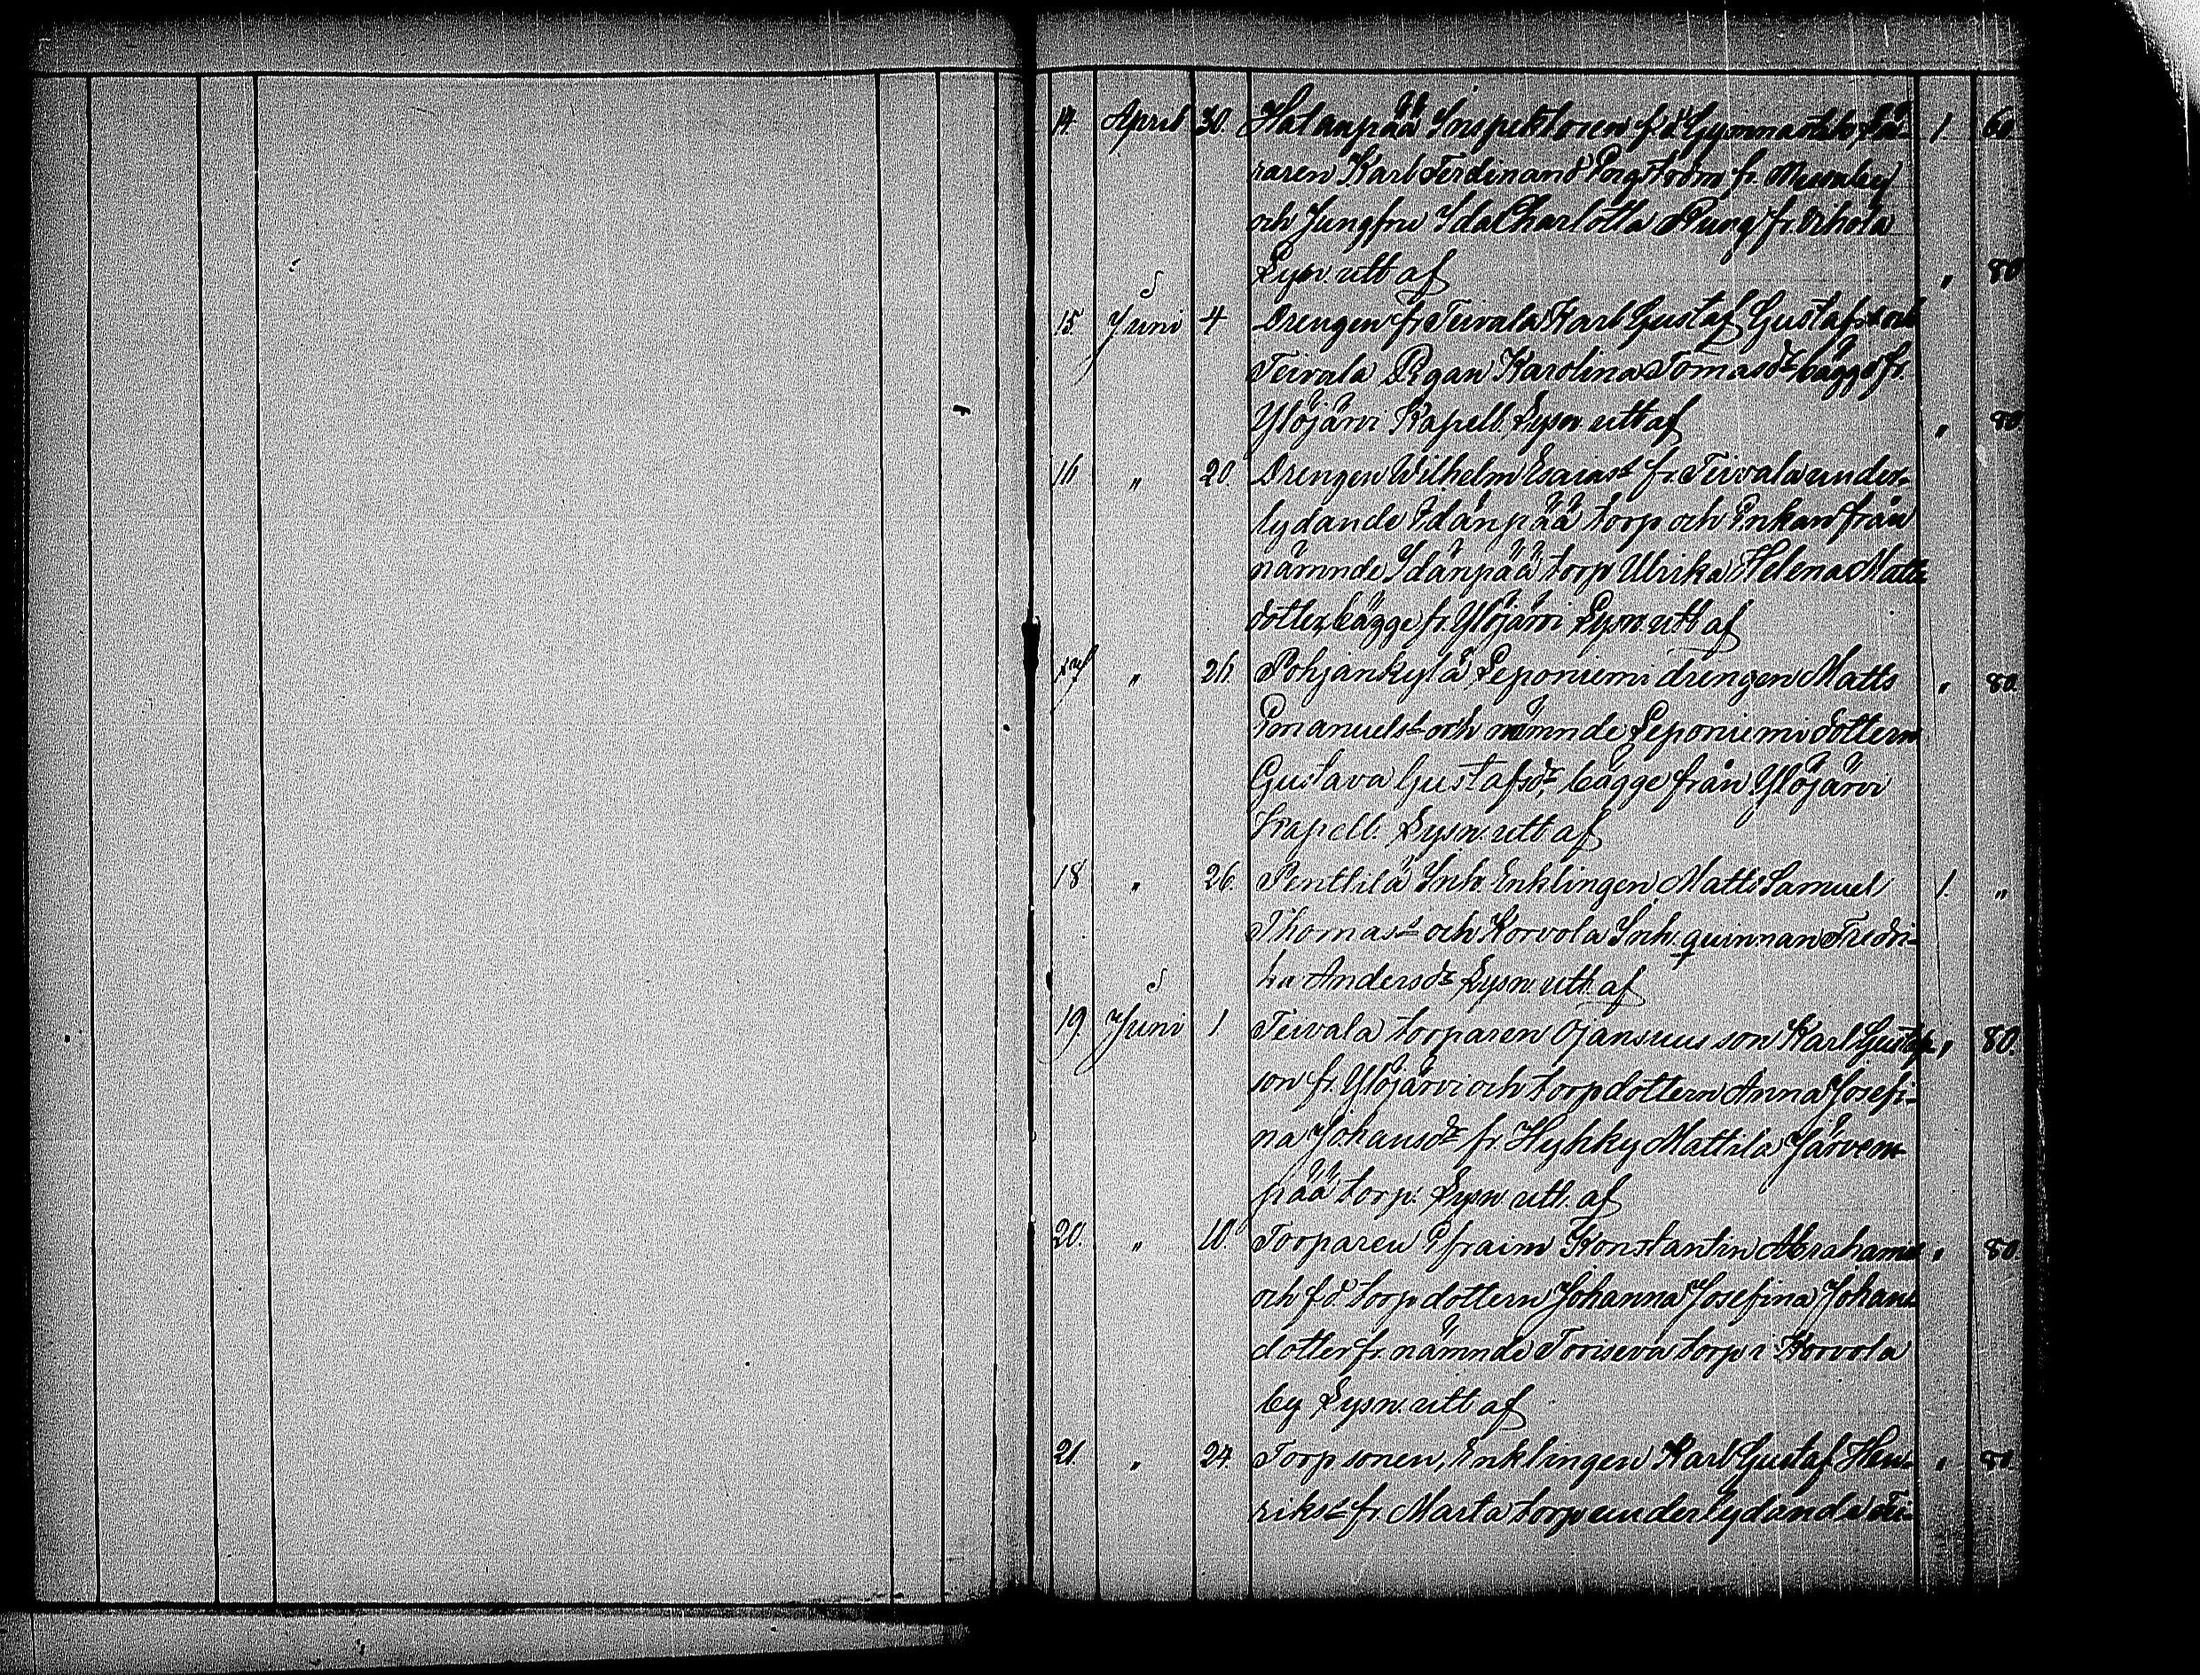 14. April 30. Halanpää Inspektoren f.d. Gymnastik lä- 1 60
raren Karl Ferdinand Engström fr.
och Jungfru Ida Charlotta Rung fr.
Lysn. utt af " 80
15. Juni 4 Drengen fr. Teivala Karl Gustaf Gustafs och
Teivala Pigan Karolina Tomasdr, bägge fr.
Ylöjärvi Kapell. Lysn. utt af " 80
16 " 20. Drengen Wilhelm Esaias fr. Teivala under-
lydande Idänpää torp och Enkan från
nämnde Idänpää torp Ulrika Helena Matts
dotter, bägge fr. Ylöjärvi Lysn. utt af
17 " 26 Pohjankylä Leponiemi drengen Matts " 80.
Emanuels och nämnde Leponiemi dottern
Gustava Gustafsdr, bägge från Ylöjärvi
Kapell. Lysn. utt af
18 " 26. Penttilä Inh. Enklingen Matts Samuel 1. "
Thomas och Korvola Inh. quinnan Fredri-
ka Andersdr Lysn. utt. af
19. Juni 1 Teivala torparen Ojansuus son Karl Gustafs- " 80.
son fr. Ylöjärvi och torpdottern Anna Josefi-
na Johansdr fr. Hyhky Mattila Järven-
pää torp. Lysn. utt. af
20. " 10. Torparen Efraim Konstantin Abrahams " 80.
och f.d. torpdottern Johanna Josefina Johans
dotter fr. nämnde Toriseva torp i Korvola
by Lysn. utt af
21. " 24. Torpsonen, Enklingen Karl Gustaf Hen- " 80.
riks fr. Marta torp underlydande